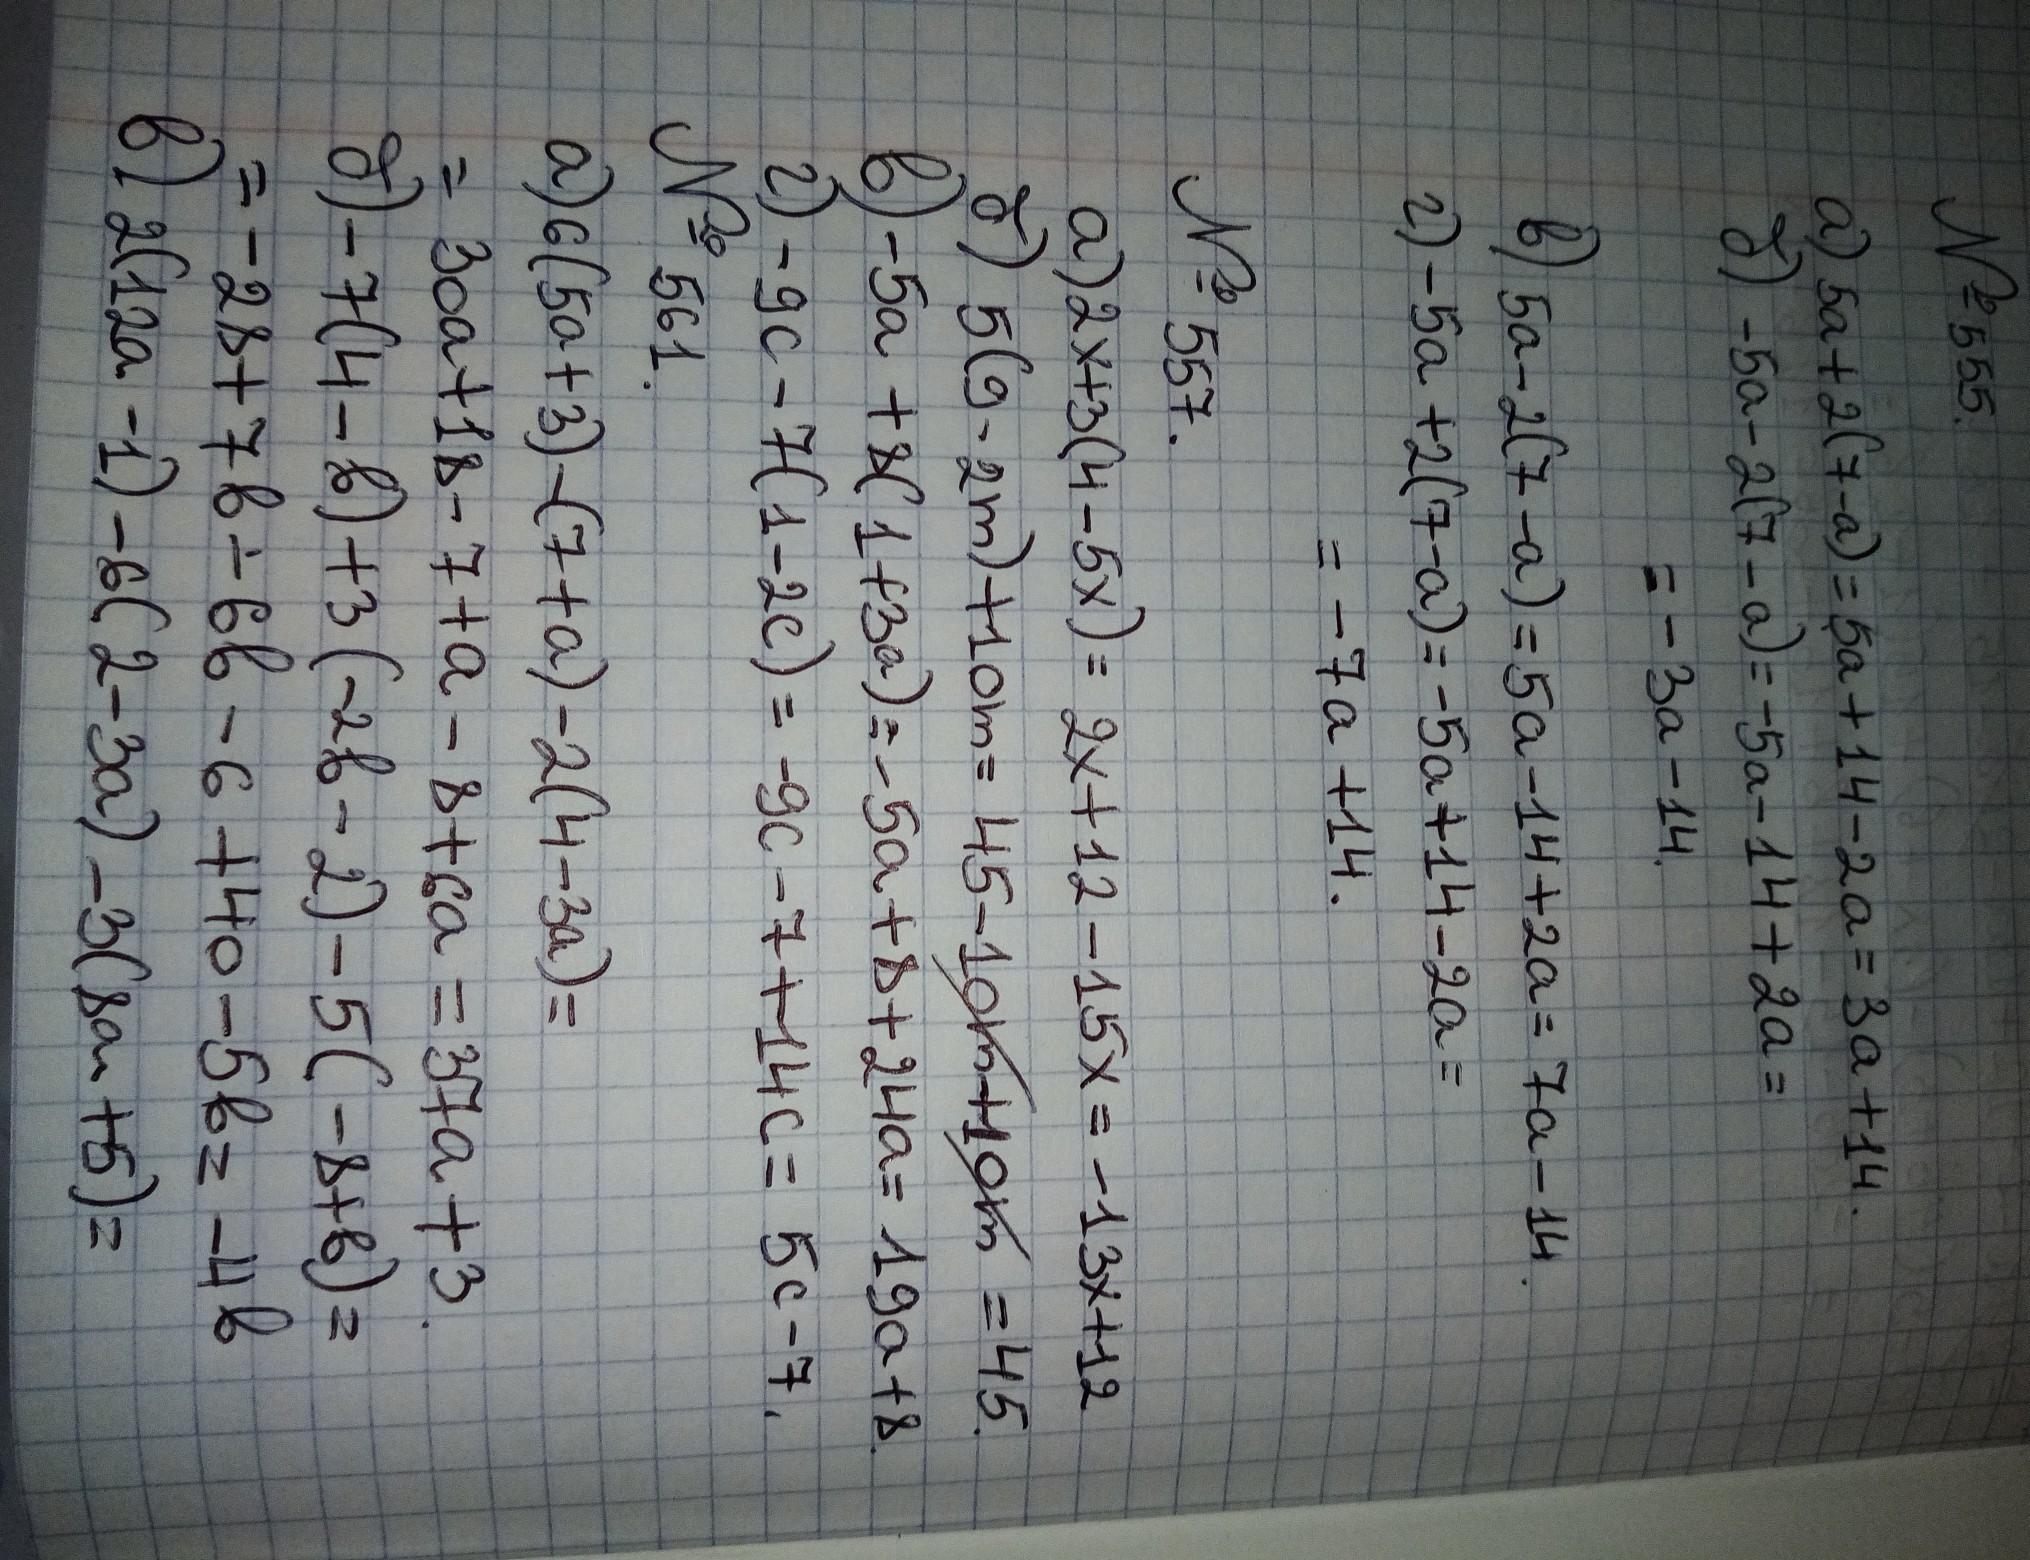 № 555.
а) 5a+2(7-a)=5a+14-2a=3a+14.
б) -5a-2(7-a)=-5a-14+2a=
=-3a-14.
в) 5a-2(7-a)=5a-14+2a=7a-14.
г) -5a+2(7-a)=-5a+14-2a=
=-7a+14.
№ 557.
а) 2x+3(4-5x)=2x+12-15x=-13x+12
б) 5(9-2m)+10m=45-10m+10m=45.
в) -5a+8(1+3a)=-5a+8+24a=19a+8.
г) -9c-7(1-2c)=-9c-7+14c=5c-7.
№ 561.
а) 6(5a+3)-(7+a)-2(4-3a)=
=30a+18-7+a-8+6a=37a+3.
б) -7(4-b)+3(-2b-2)-5(-8+b)=
=-28+7b-6b-6+40-5b=-4b
в) 2(12a-1)-6(2-3a)-3(8a+5)=